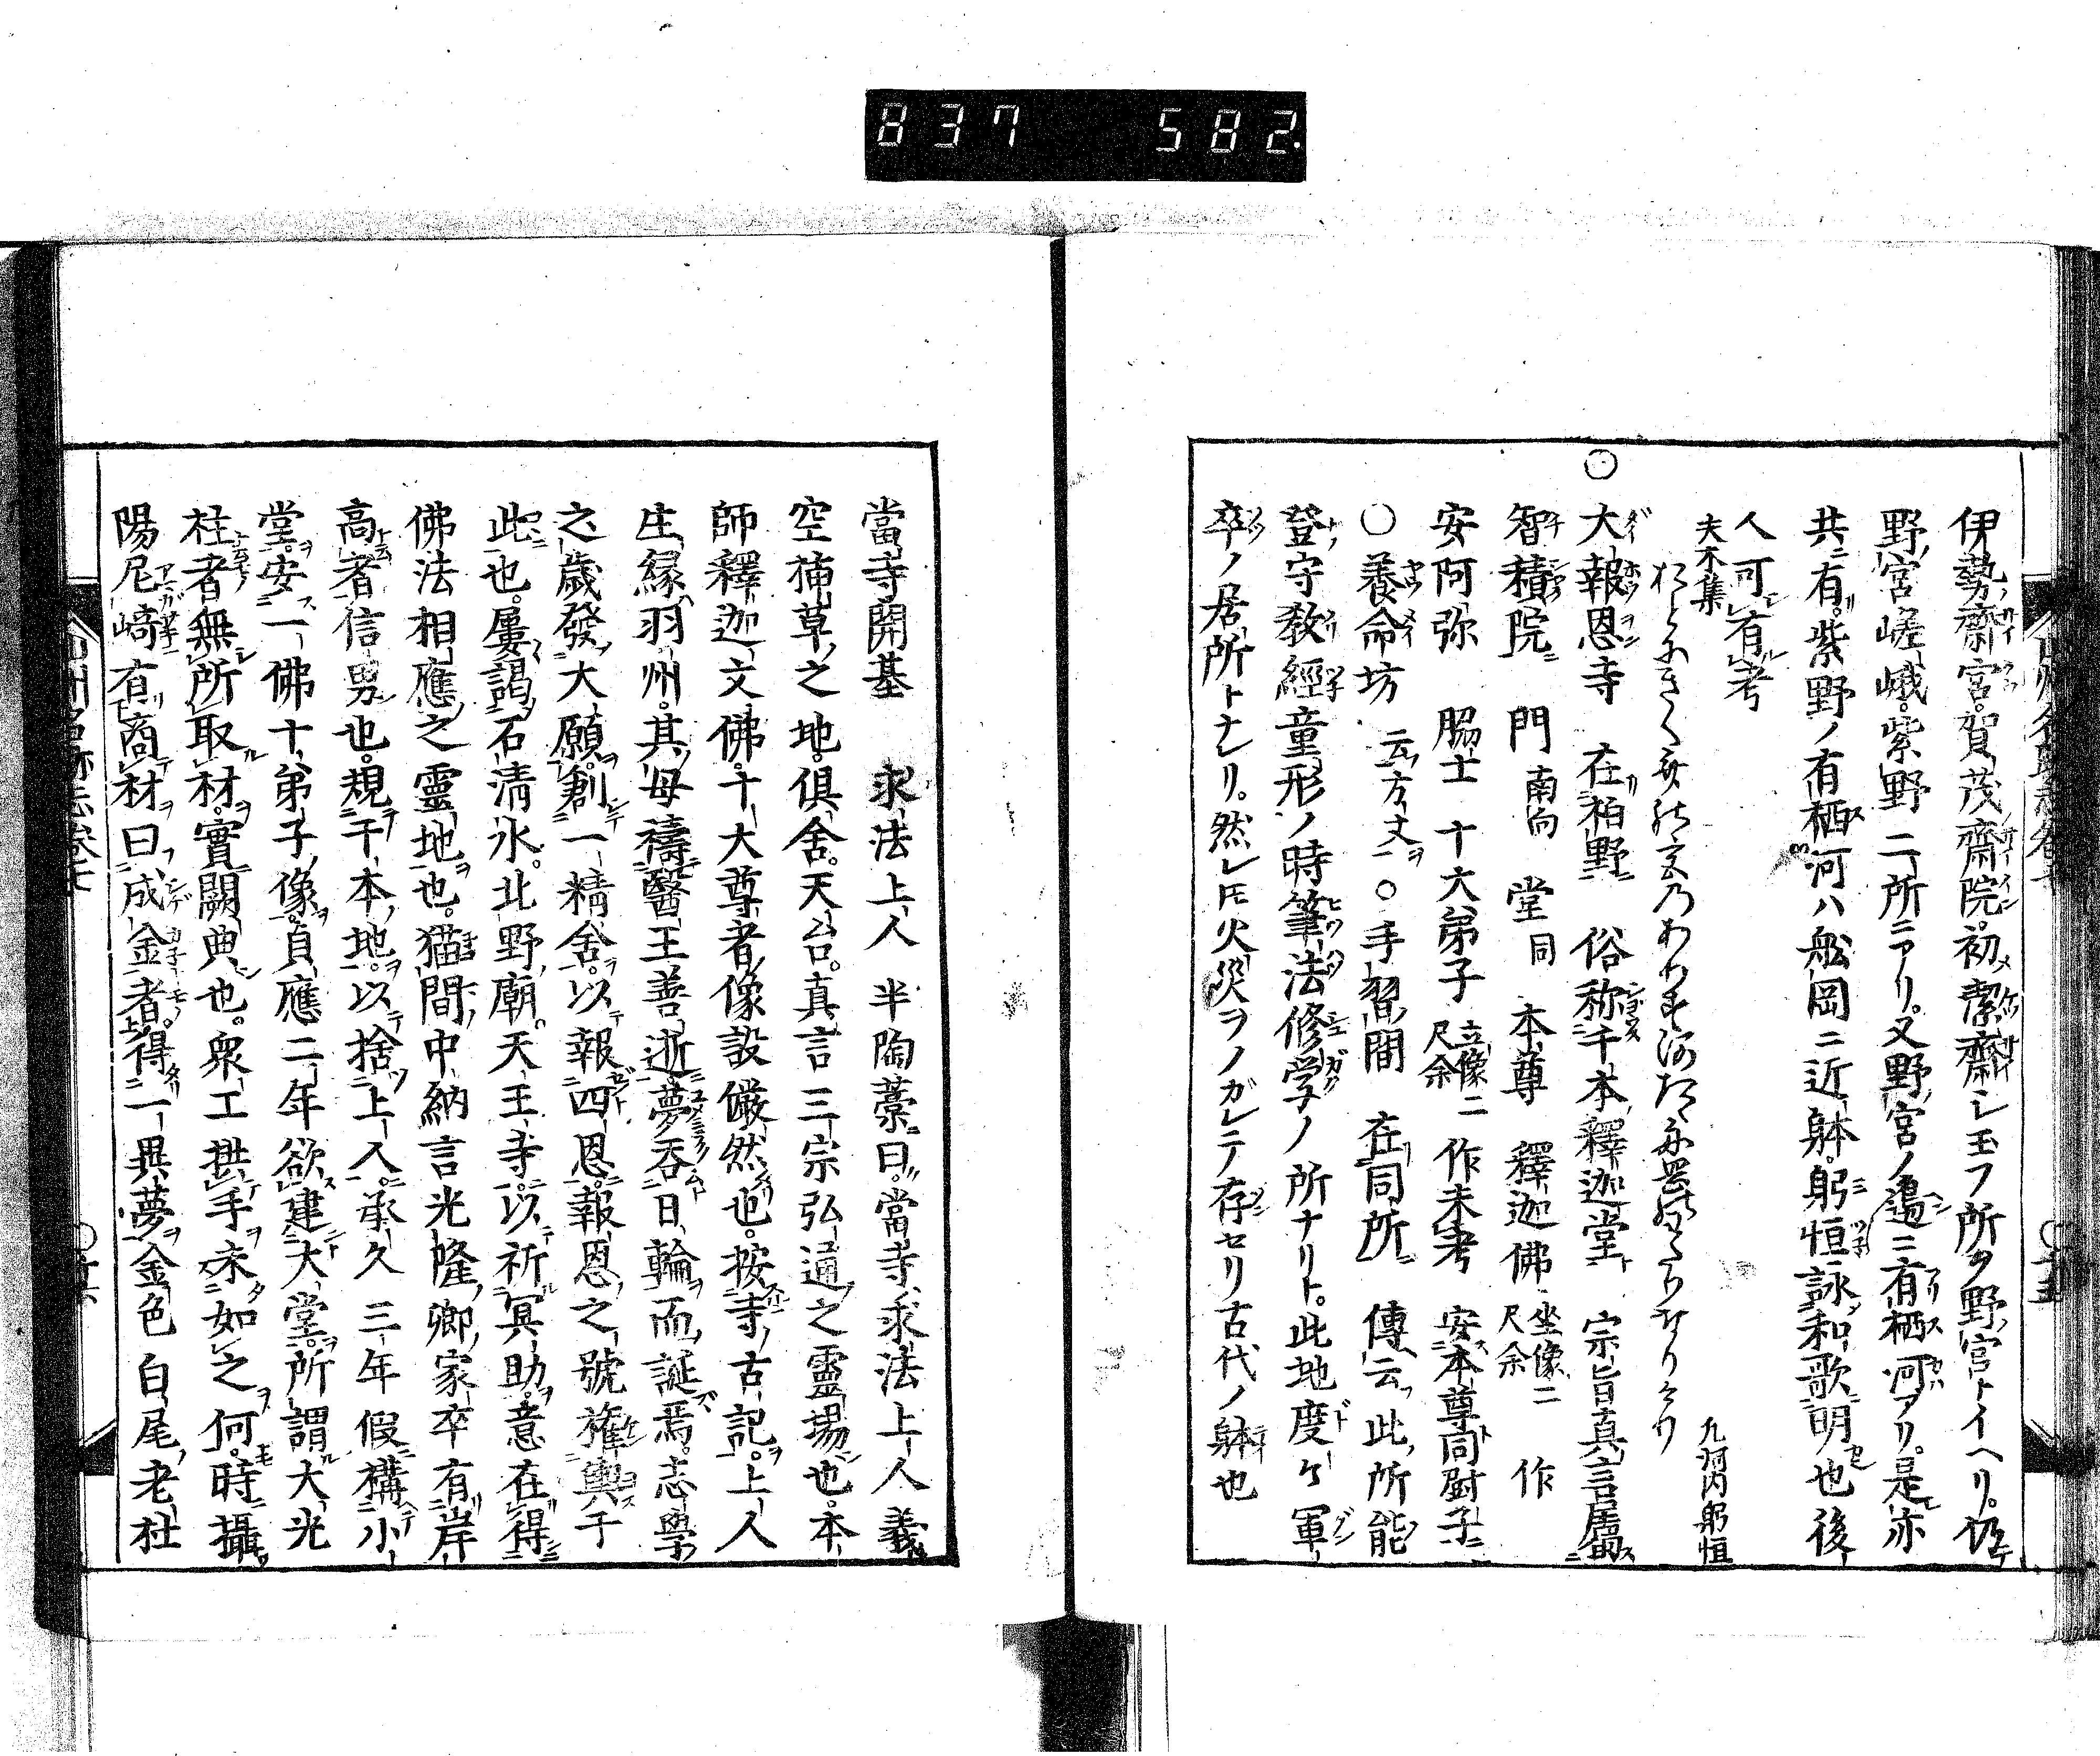 837 582.
伊勢ノ齋宮。賀茂ノ齋院。初メ潔齋シ玉フ所ヲ野ノ宮トイヘリ。仍テ
野ノ宮嵯峨。紫野二所ニアリ。又野ノ宮ノ邊ニ有栖河アリ。是モ亦
共ニ有リ。紫野ノ有栖河ハ舩岡ニ近シ。躬恒詠和歌ニ明也後
人可有考
夫木集
九河内躬恒
○大報恩寺 在柏野 俗称千本釋迦堂 宗旨真言属
智積院 門南向 堂同 本尊 釋迦佛坐像二尺余 作
安阿弥 脇士 十大弟子立像二尺余 作未考 安本尊同厨子
○養命坊 云方丈 ○手習間 在同所 傳云此所能
登守教經童形ノ時筆法修学ノ所ナリト。此地度ケ軍
卒ノ居所トナレリ。然レ𪜈火災ヲノガレテ存セリ古代ノ躰也
當寺開基 求法上人 半陶藁曰。當寺求法上人義
空搆草之地。俱舍。天台。真言三宗弘通之靈場也。本
師釋迦文佛。十大尊者像設儼然也。按寺古記。上人
生縁羽州。其母禱醫王善逝夢吞日輪而誕焉。志學
之歲發大願。創一精舍。以報四恩。報恩之號權輿于
此也。屢謁石清水。北野廟。天王寺。以祈冥助。意在得
佛法相應之靈地也。猫間中納言光隆卿家卒有岸
高者信男也。規千本地。以捨上人。承久三年假構小
堂。安一佛十弟子像。貞應二年欲建大堂。所謂大光
柱者無所取材。實闕典也。衆工拱手未如之何。時攝
陽尼﨑有商材曰成金者。得一異夢金色白尾老杜